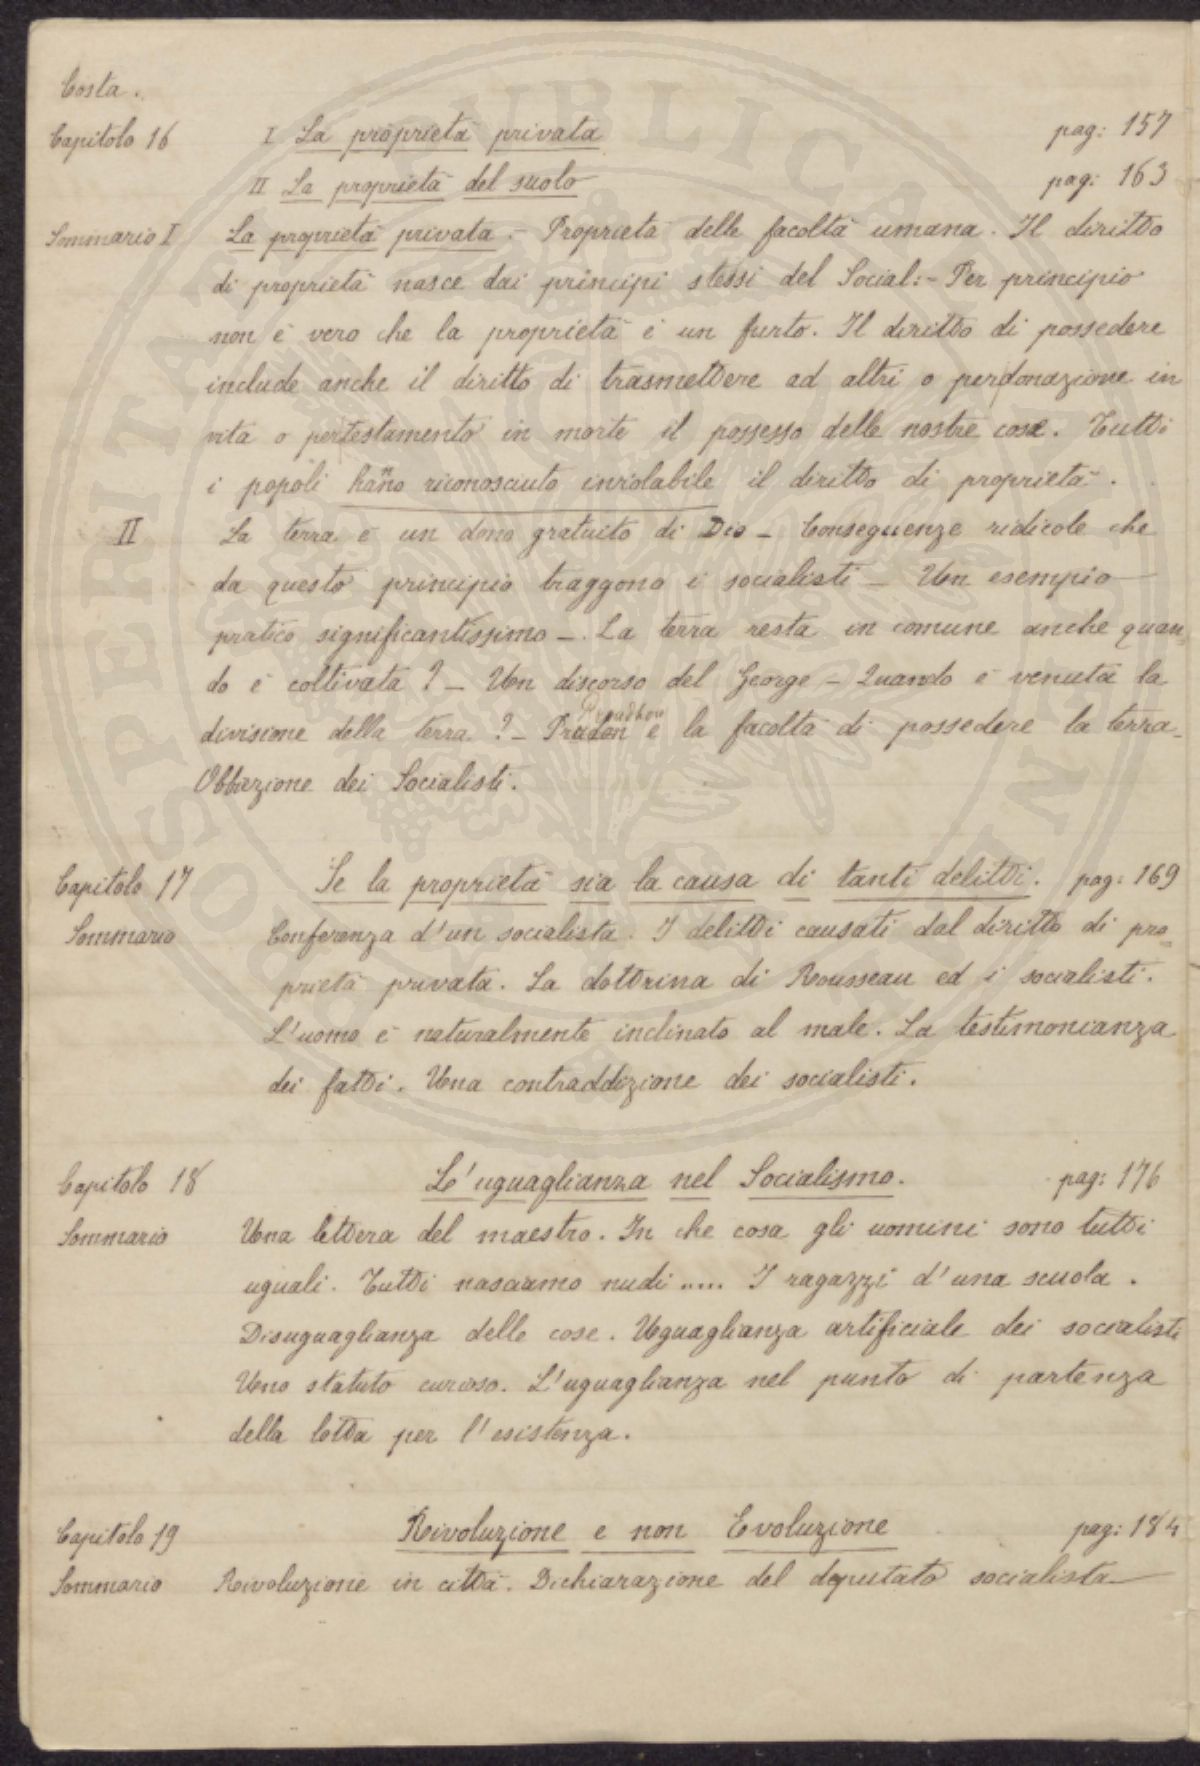 Costa.
Capitolo 16 I La proprietà privata pag: 157
II La proprietà del suolo pag: 163
Sommario I La proprietà privata. - Proprietà delle facoltà umana. Il diritto
di proprietà nasce dai principi stessi del Social: - Per principio
non è vero che la proprietà è un furto. Il diritto di possedere
include anche il diritto di trasmettere ad altri o per donazione in
vita o per testamento in morte il possesso delle nostre cose. Tutti
i popoli hanno riconosciuto inviolabile il diritto di proprietà.
II La terra è un dono gratuito di Dio - Conseguenze ridicole che
da questo principio traggono i socialisti - Un esempio
pratico significantissimo -. La terra resta in comune anche quan-
do è coltivata? - Un discorso del George - Quando è venuta la
divisione della terra? - Prudon Proudhon e la facoltà di possedere la terra -
Obbiezione dei Socialisti.
Capitolo 17 Se la proprietà sia la causa di tanti delitti. pag: 169
Sommario Conferenza d'un socialista. I delitti causati dal diritto di pro-
prietà privata. La dottrina di Rousseau ed i socialisti.
L'uomo è naturalmente inclinato al male. La testimonianza
dei fatti. Una contraddizione dei socialisti.
Capitolo 18 L'uguaglianza nel Socialismo. pag: 176
Sommario Una lettera del maestro. In che cosa gli uomini sono tutti
uguali. Tutti nasciamo nudi..... I ragazzi d'una scuola.
Disuguaglianza delle cose. Uguaglianza artificiale dei socialisti
Uno statuto curioso. L'uguaglianza nel punto di partenza
della lotta per l'esistenza.
Capitolo 19 Rivoluzione e non Evoluzione pag: 184
Sommario Rivoluzione in città. Dichiarazione del deputato socialista
PROSPERITATI PUBLICAE